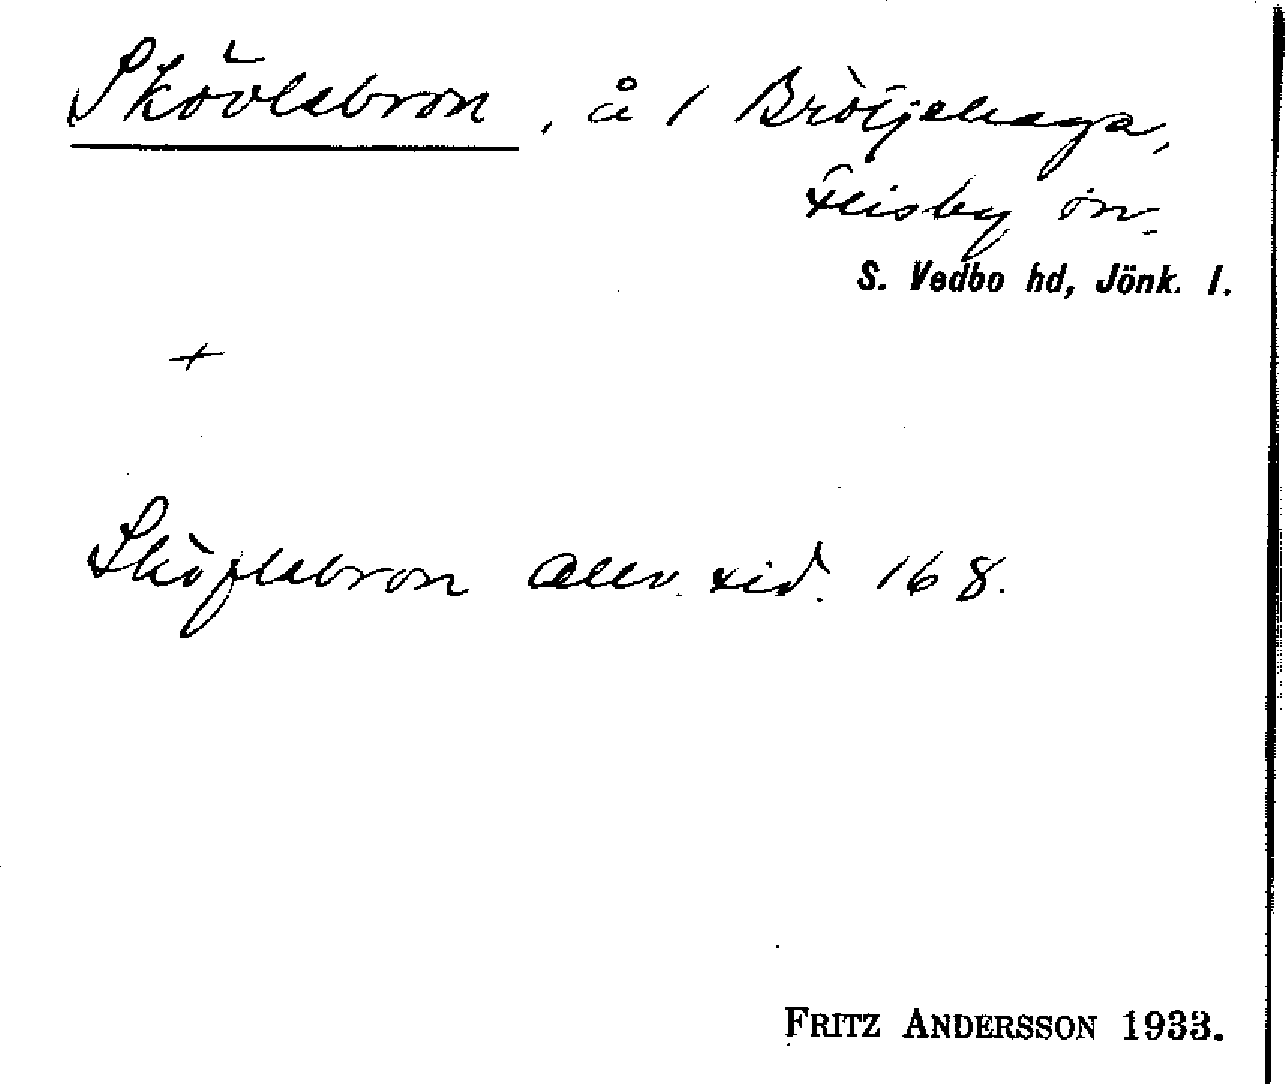 Skövlabron, å 1 Brötjehaga,
Flisby sn.
S. Vedbo hd, Jönk. l.
+
Sköflabron Allm. tid. 168.
FRITZ ANDERSSON 1933.